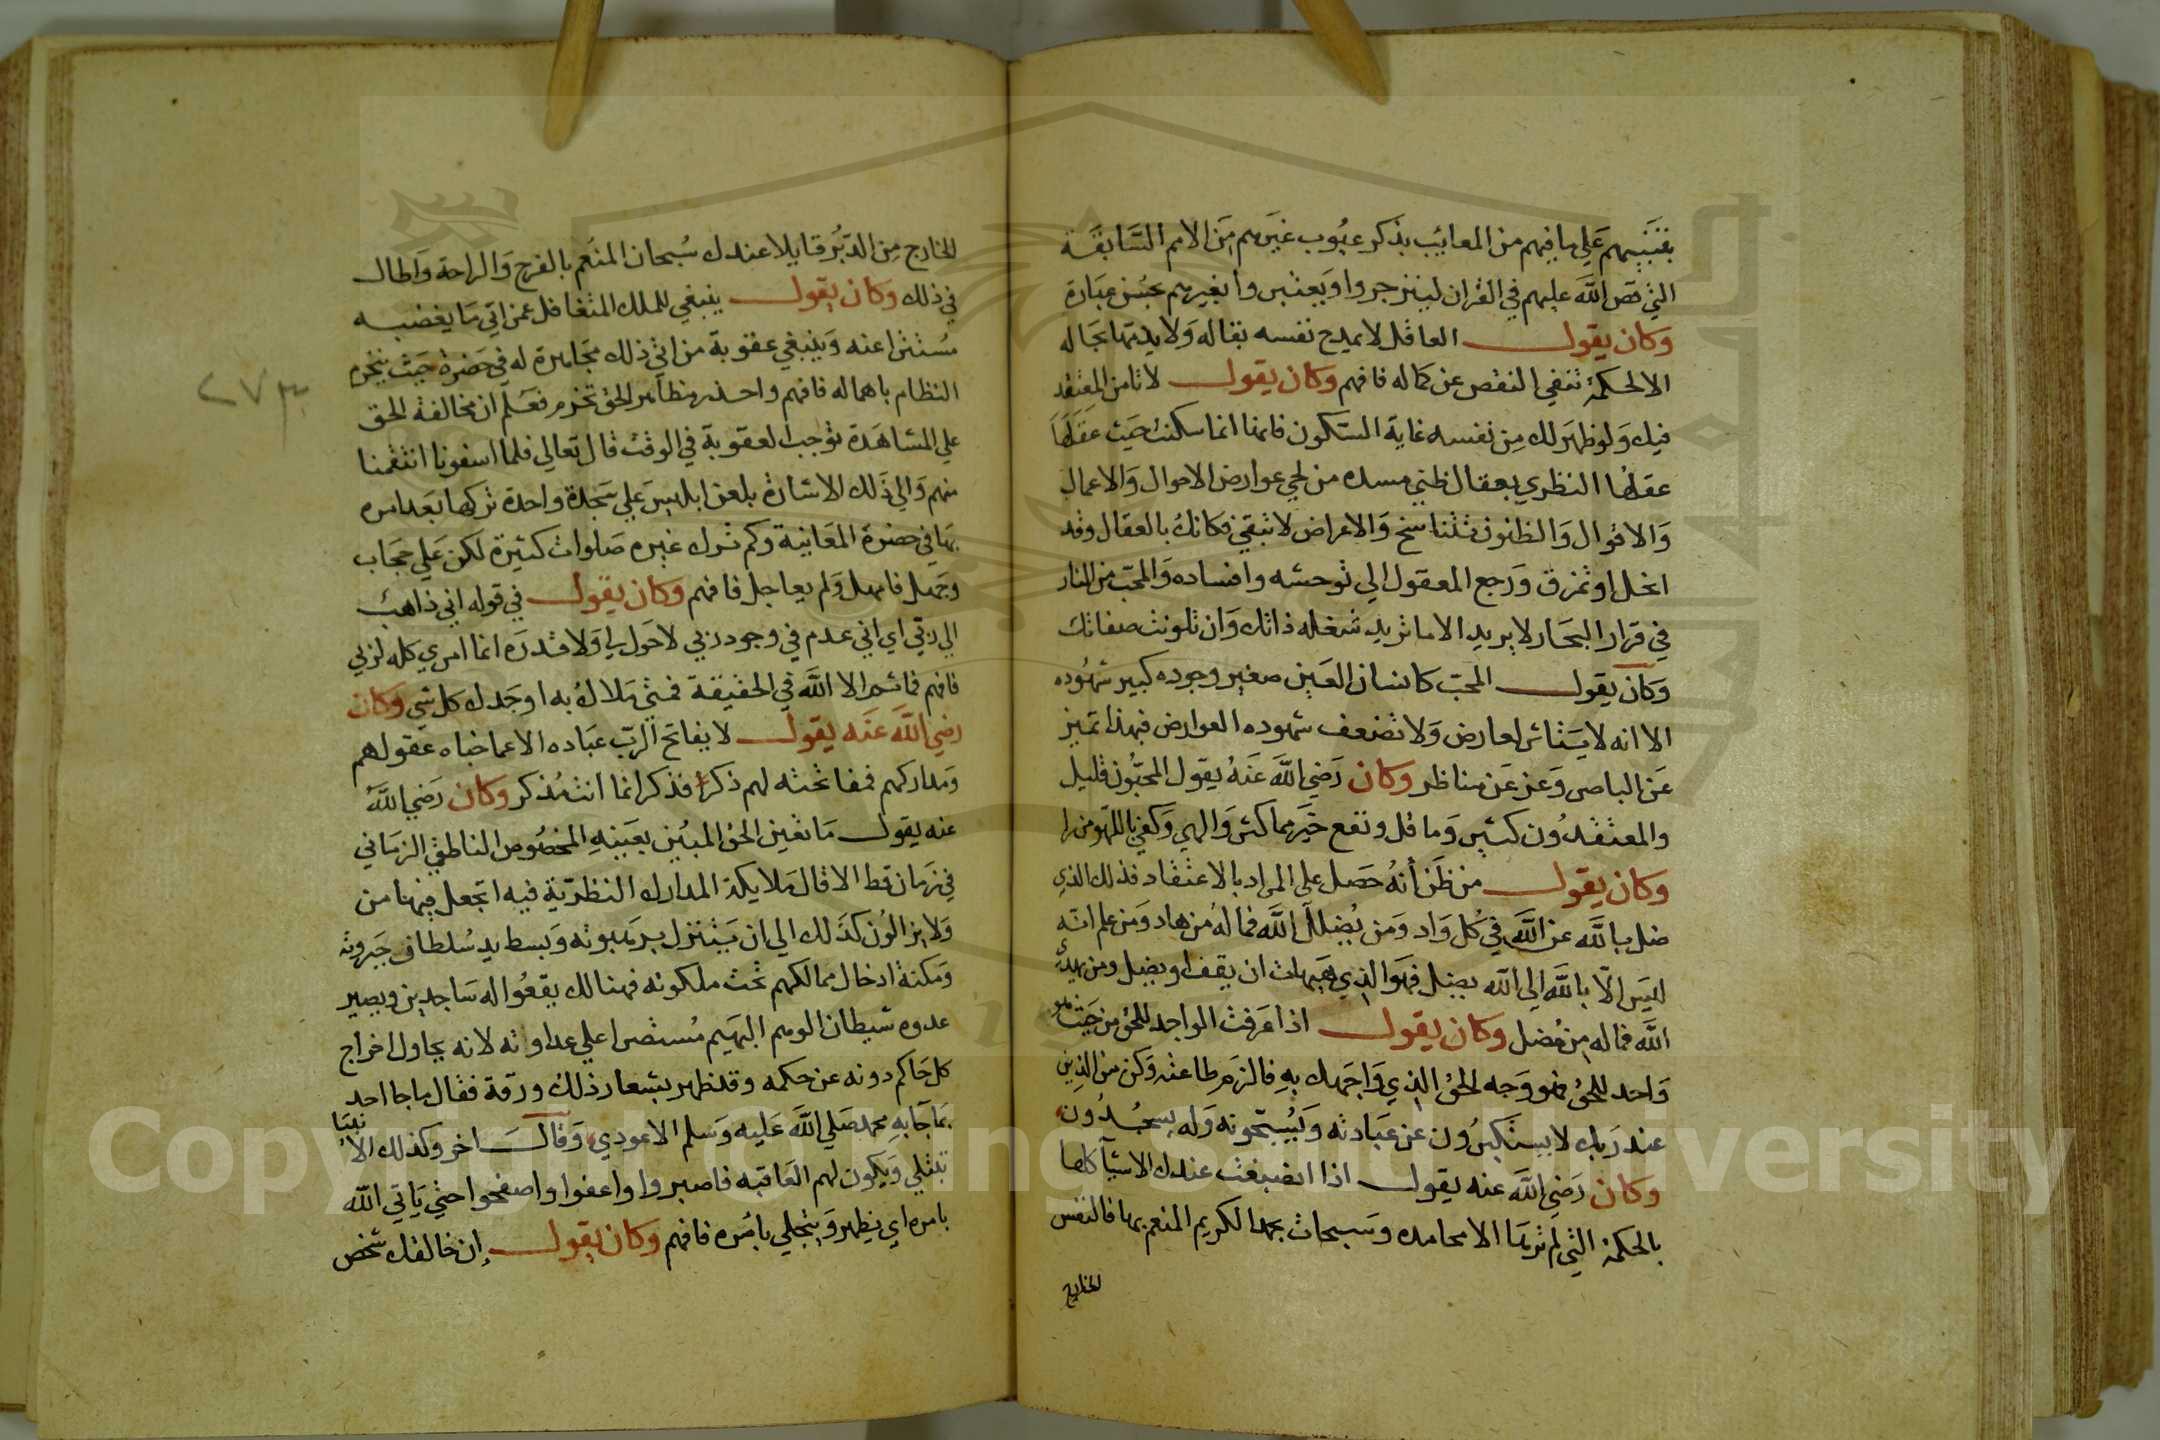 بتنبيههم علي ما فيهم من المعائب بذكر عيوب غيرهم من الامم السابقة
التي قص الله عليهم في القران لينزجروا ويعتبروا بغيرهم بحسن عبارة
وكان يقول العاقل لا يمدح نفسه بقاله ولا يذمها بحاله
الا لحكمة تنفي النقص عن كماله فافهم وكان يقول لا تامن المعتقد
فيك ولو ظهر لك من نفسه غاية السكون فانها انما سكنت حيث عقلها
عقلها النظري بعقال ظني مسده من لحي عوارض الاحوال والاعمال
والاقوال والظنون تتناسخ والاعراض لا تبقي فكانك بالعقال وقد
انحل او تمزق ورجع المعقول الي توحشه وافساده والمحب من النار
في قرار البحار لا يريد الا ما تريد شغله ذاتك وان تلونت صفاتك
وكان يقول المحب كانسان العين صغير وجوده كبير شهوده
الا انه لا يتاثر لعارض ولا تضعف شهوده العوارض فبهذا تميز
عن الباصر وعز عن مناظر وكان رضي الله عنه يقول المحبون قليل
والمعتقدون كثير وما قل ونفع خير مما كثر والهي وكفي باللهو مزرا
وكان يقول من ظن أنه حصل علي المراد بالاعتقاد فذلك الذي
ضل بالله عن الله في كل واد ومن يضلل الله فما له من هاد ومن علم انه
ليس الا بالله الي الله يصل فهو الذي هيهات ان يقف او يضل ومن يهدي
الله فما له من مضل وكان يقول اذا عرفت الواجد للحق من حيث هو
واحد للحق فهو وجه الحق الذي واجهك به فالزم طاعته وكن من الذين
عند ربك لا يستكبرون عن عبادته ويسبحونه وله يسجدون
وكان رضي الله عنه يقول اذا انصبغت عندك الاشيآ كلها
بالحكمة التي لم تر بها الا محامده وسبحات بحمد الكريم المنعم بها فالنفس
الخارج
الخارج من الدبر قايلا عندك سبحان المنعم بالفرج والراحة واطال
في ذلك وكان يقول ينبغي للملك المتغافل عمن اتي ما يغضبه
مستترا عنه وينبغي عقوبة من اتي ذلك مجاهرة له في حضرة حيث ينخرم
النظام باهماله فافهم واحذر مظاهر الحق تخزم فعلم ان مخالفة الحق
علي المشاهدة توجب العقوبة في الوقت قال تعالي فلما اسفونا انتقمنا
منهم والي ذلك الاشارة بلعن ابليس علي سجدة واحدة تركها بعد امره
بها في حضرة المعاينة وكم ترك غيره صلوات كثيرة لكن علي حجاب
وجهل فامهل ولم يعاجل فافهم وكان يقول في قوله اني ذاهب
الي ربي اي اني عدم في وجود ربي لا حول لي ولا قدرة انما امري كله لربي
فافهم فما ثم الا الله في الحقيقة فمتي ملاك به اوجدك كل شي وكان
رضي الله عنه يقول لا يفاتح الرب عباده الا عما خباه عقولهم
ومداركهم فمفاتحته لهم ذكرا فذكر انما انت مذكر وكان رضي الله
عنه يقول ما تعين الحق المبين بعينه المخصوص الناطقي الزماني
في زمان قط الا قال ملايكة المدارك النظرية فيه اتجعل فيها من
ولا يزالون كذلك الي ان يتنزل بربيوته وبسط يد سلطان جبروته
ومكنة ادخال ممالكهم تحت ملكوته فهنالك يقعوا له ساجدين ويصير
عدوه شيطان الوهم البهيم مستصرا علي عداوته لانه يحاول اخراج
كل حاكم دونه عن حكمه وقد ظهر بشعار ذلك ورقة فقال ما جا احد
بما جآ به محمد صلي الله عليه وسلم الا عودي وقال اخر وكذلك الانبيا
تبتلي ويكون لهم العاقبه فاصبروا واعفوا واصفحوا حتي ياتي الله
بامره اي يظهر ويتجلي بامره فافهم وكان يقول إن خالفك شخص
٢٧٣
Copyright © King Saud University